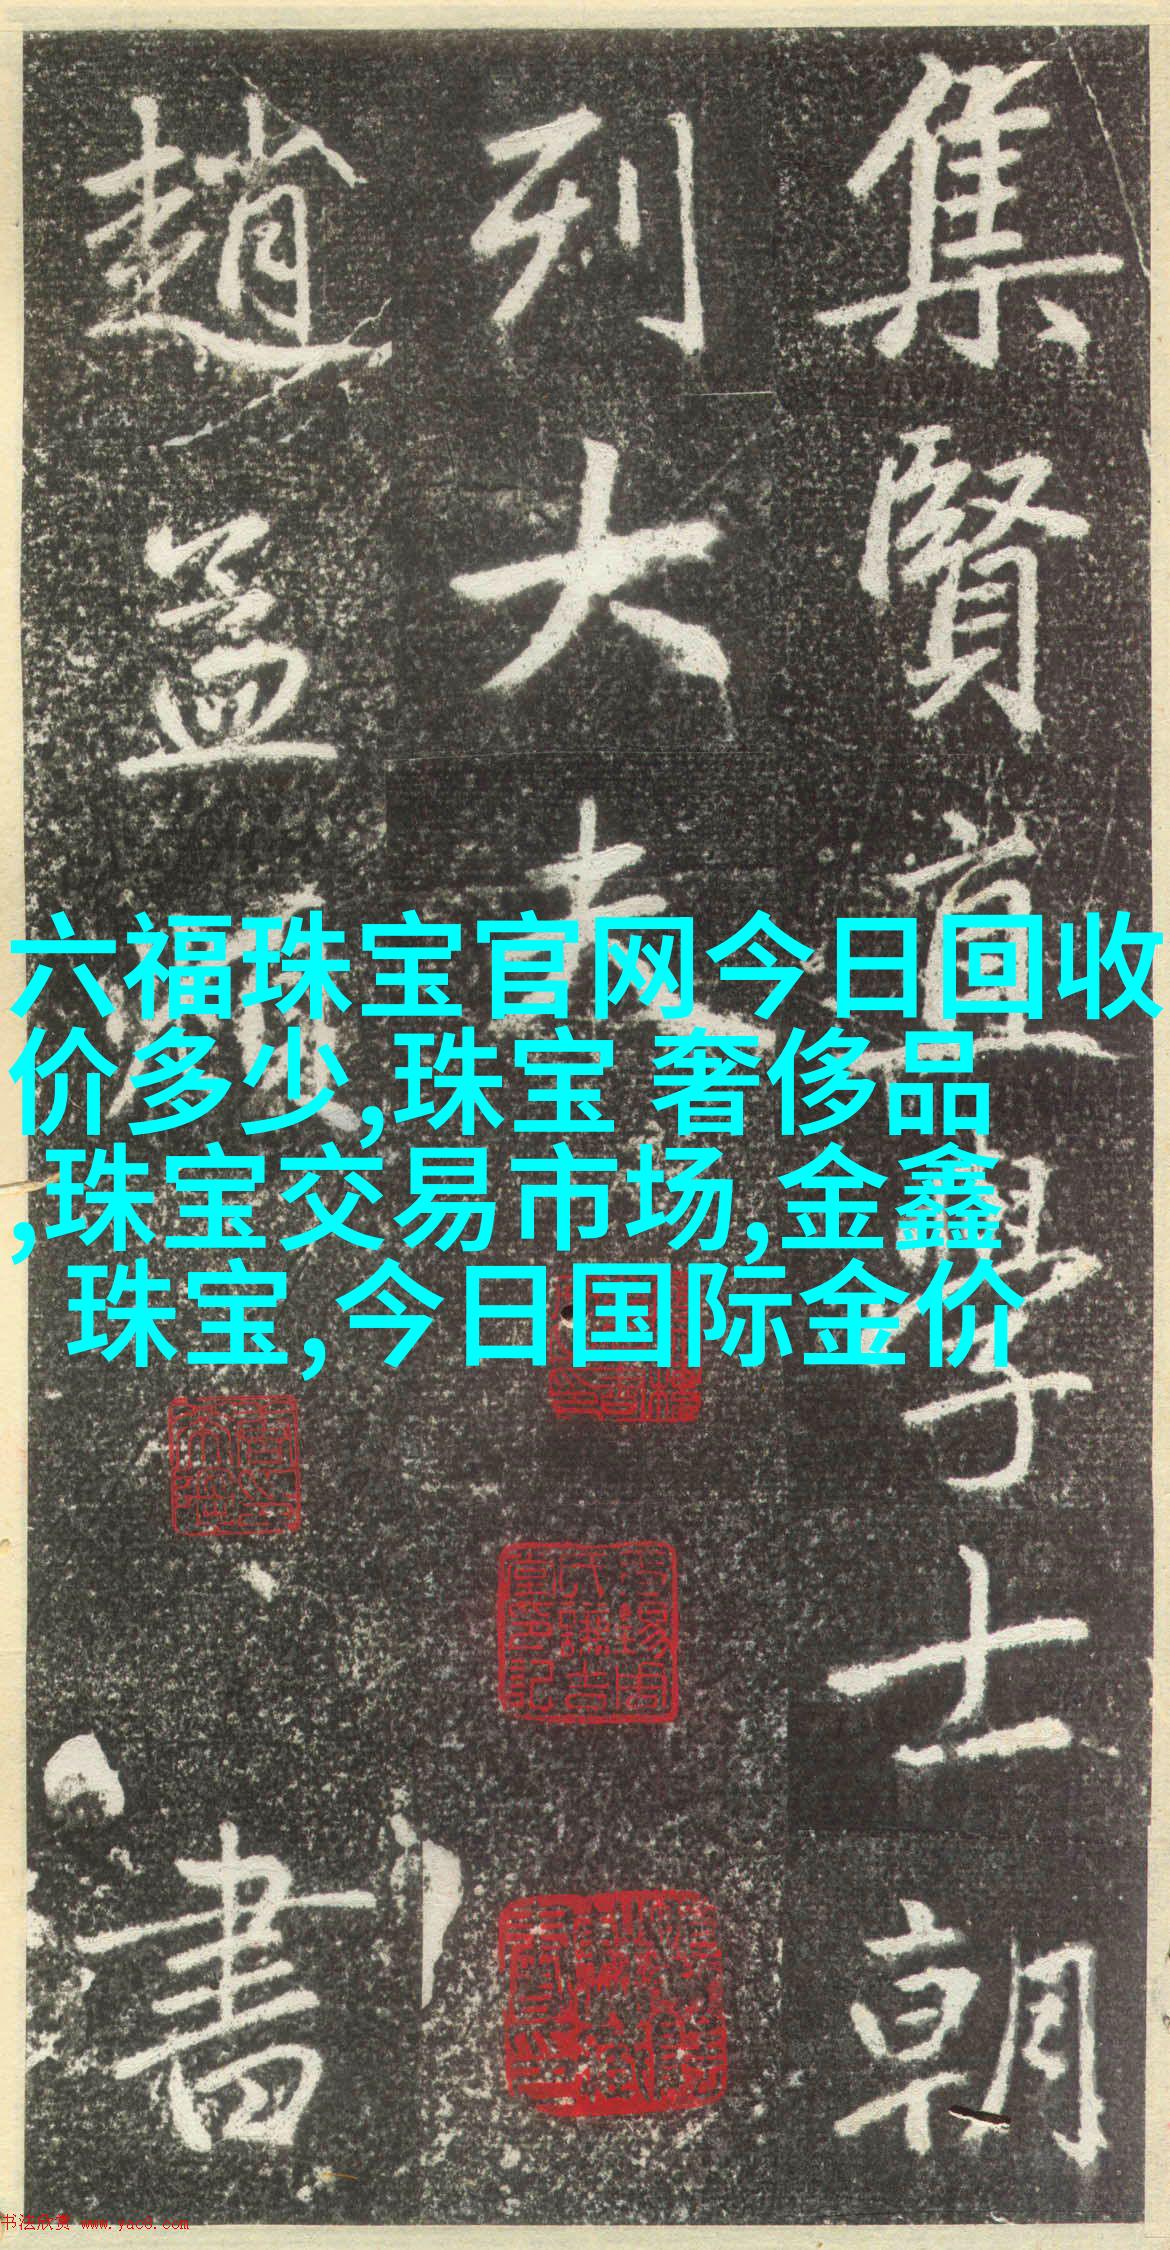 集賢直學士朝
列大夫
趙孟頫
書
六福珠宝官网今日回收
价多少,珠宝 奢侈品
,珠宝交易市场,金鑫
珠宝,今日国际金价
书法欣赏 www.yac8.com